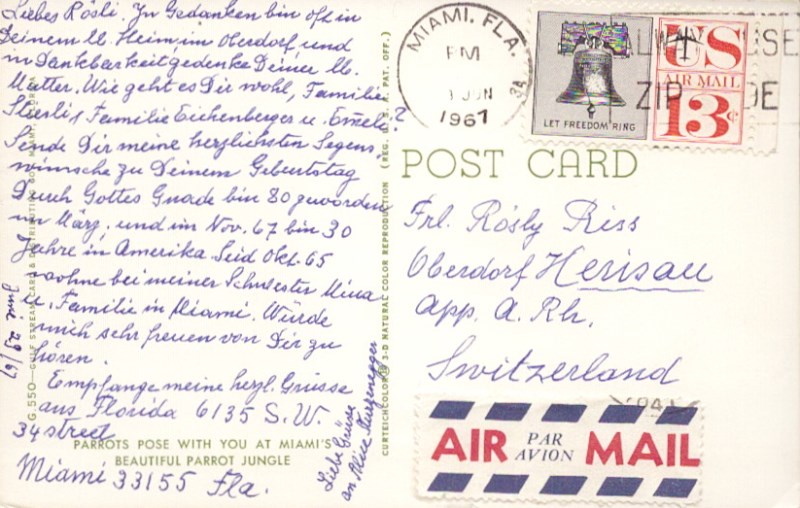 Liebes Rösli. In Gedanken bin oft in
Deinem lb. Heim, im Oberdorf und
in Dankbarkeit gedenke Deiner lb.
Mutter. Wie geht es Dir wohl, Familie
Familie Eichenberger u. Emeli?
Sende Dir meine herzlichsten Segens
wünsche zu Deinem Geburtstag
Durch Gottes Gnade bin 80 geworden
im März, und im Nov. 67 bin 30
Jahre in Amerika. Seid Okt. 65
wohne bei meiner Schwester Mina
u. Familie in Miami. Würde
mich sehr freuen von Dir zu
hören.
Empfange meine herzl. Grüsse
aus Florida 6135 S. W.
34 street
Miami 33155 Fla.
Liebe Grüsse
an
Juni 29/67
PARROTS POSE WITH YOU AT MIAMI'S
BEAUTIFUL PARROT JUNGLE
G.550—GULF STREAM CARD & DISTRIBUTING CO., MIAMI, FLORIDA
CURTEICHCOLOR® 3-D NATURAL COLOR REPRODUCTION (REG. U.S.A. PAT. OFF.)
MIAMI, FLA.
PM
JUN
1967
LET FREEDOM RING
US
AIR MAIL
13¢
ALWAYS USE
ZIP CODE
POST CARD
Frl. Rösly Riss
Oberdorf Herisau
App. A. Rh.
Switzerland
AIR PAR AVION MAIL